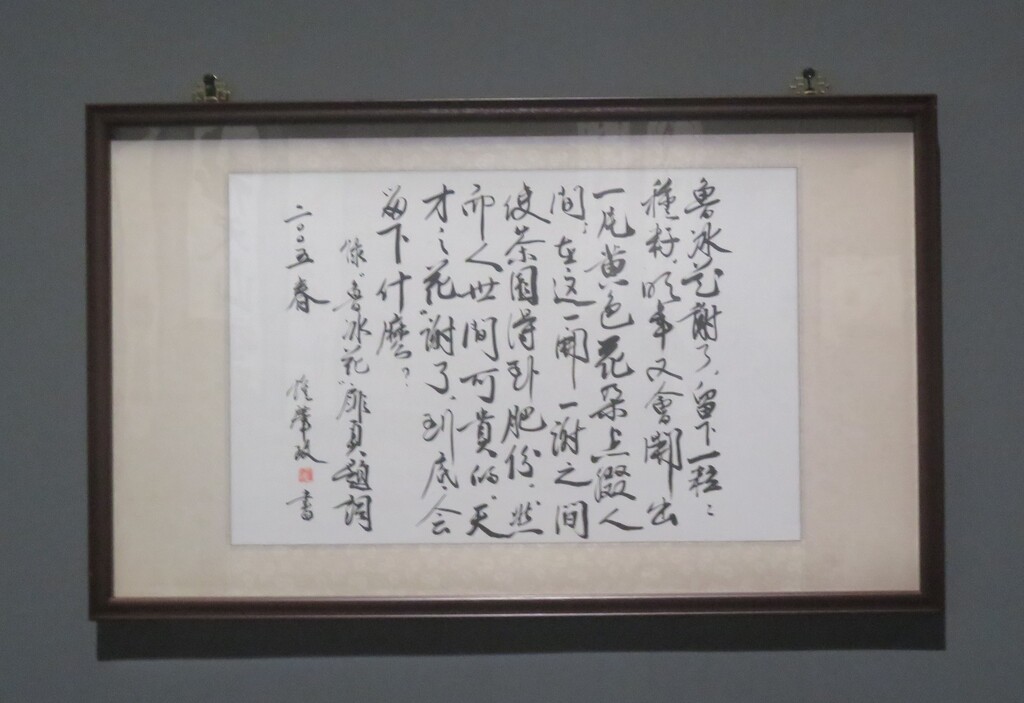 魯冰花謝了，留下一粒々
種籽，明年又會開出
一片黄色花朵点綴人
間；在這一開一謝之間
使茶園得到肥份。然
而人世間可貴的“天
才之花”謝了，到底会
留下什麼？
錄“魯冰花”扉頁題詞
二○○五春 鍾肇政 書